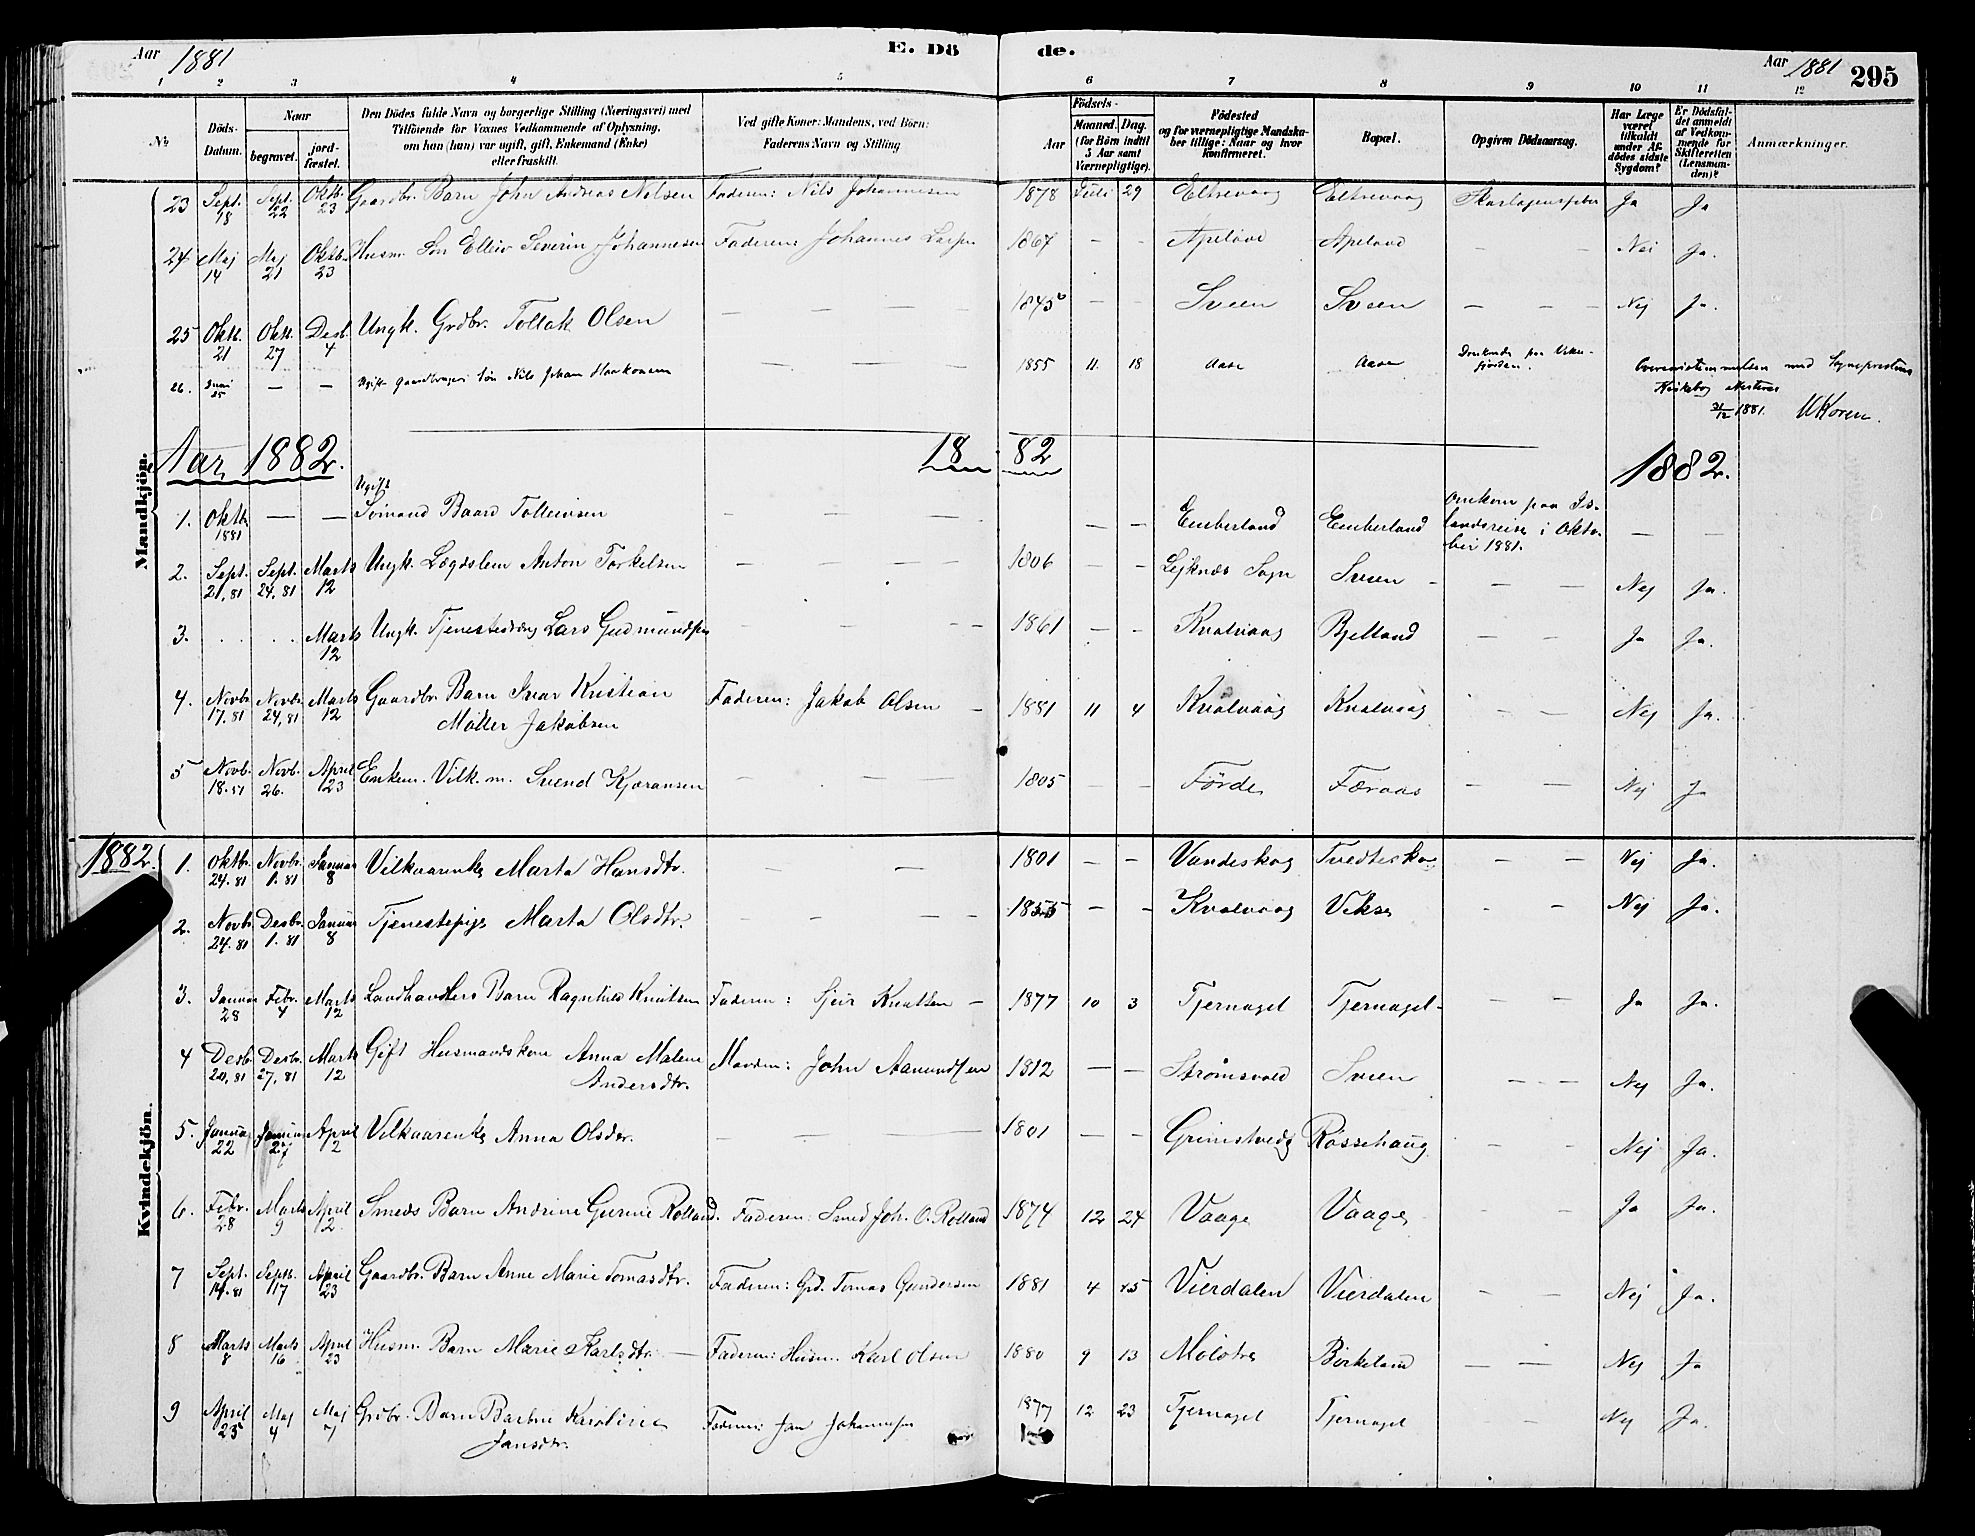 Aar 1881
E. Dö
de.
Aar 1881 295
1 2 3 4 5 6 7 8 9 10 11 12
No
Döds-Datum.
Naar
begravet.
jord-fæstet.
Den Dödes fulde Navn og borgerlige Stilling (Næringsvei) med
Tilföiende for Voxnes Vedkommende af Oplysning,
om han (hun) var ugift, gift, Enkemand (Enke)
eller fraskilt.
Ved gifte Koner: Mandens, ved Börn:
Faderens Navn og Stilling
Födsels-
Aar
Maaned. Dag.
(for Börn indtil
5 Aar samt
Værnepligtige).
Födested
og for værnepligtige Mandska-
ber tillige: Naar og hvor
konfirmeret.
Bopæl.
Opgiven Dödsaarsag.
Har Læge
været
tilkaldt
under Af-
dödes sidste
Sygdom?
Er Dödsfal-
det anmeldt
af Vedkom-
mende for
Skifteretten
(Lensman-
den)?
Anmærkninger.
Mandkjön.
23 Sept. 18 Sept. 22 Oktb. 23 Gaardbr. Barn John Andreas Nilsen Faderen: Nils Johannesen 1878 Juli 29 Eltrevaag Eltrevaag Skarlagensfeber Ja Ja
24 Maj 14 Maj 21 Oktb. 23 Husm. Søn Ellev Severin Johannesen Faderen: Johannes Larsen 1867 - - Apeland Apeland - - Nei Ja.
25 Oktb. 21 Oktb. 27 Desb. 4 Ungk. Grdbr. Tollak Olsen - - - 1845 - - Sveen Sveen - - - Nej Ja.
26. Juni 25 - - Ugift Gaardbrugers Søn Nils Johan Haakonsen - - - 1855 11. 18 Aase Aase Druknede paa Viks-
fjorden.
Overensstemmelsen med Sogneprestens
Kirkebog attesteres
31/12 1881. UKoren.
Aar 1882. 18 82 1882.
1. Oktb. 1881 - - Ugift
Sømand Baard Tolleivsen - - - - - Emberland Emberland Omkom paa Is-
landsreise i Okto-
ber 1881. - -
2. Sept. 21, 81 Sept. 24, 81 Marts 12 Ungk. Lægdslem Anton Torkelsen - - - - 1806 - - Lejknæs Sogn Sveen - - - Nej Ja.
3. . . . Marts 12 Ungk. Tjenestedreng Lars Gudmundsen - - - 1861 - - Kvalvaag Bjelland - - Ja Ja.
4. Novbr. 17, 81 Novbr. 24, 81 Marts 12 Gaardbr. Barn Ivar Kristian
Møller Jakobsen Faderen: Jakob Olsen - 1881 11 4 Kvalvaag Kvalvaag - - Nej Ja.
5 Novb. 18. 81 Novb. 26. April 23 Enkem. Vilk. m. Svend Kjøransen - - - 1805 - - Førde Færaas - - Nej Ja
1882.
Kvindekjön.
1. Oktbr. 24. 81 Novbr. 1. 81 Januar 8 Vilkaarenke Marta Hansdtr. - - 1801 - - Vandeskog Tvedteskog - - Nej Ja.
2. Novbr. 24. 81 Desbr. 1. 81 Januar 8 Tjenestepige Marta Olsdtr. - - - - 1855 - - Kvalvaag Vikse - - Nej Ja.
3. Januar 28 Febr. 4 Marts 12 Landhandlers Barn Ragnhild Knutsen Faderen: Knutsen - 1877 10 3 Tjernagel Tjernagel - - - Ja Ja.
4 Desb. 20, 81 Desbr. 27, 81 Marts 12 Gift Husmandskone Anna Malene
Andersdtr. Manden: John Aamundsen 1812 - - Strømsvold Sveen - - Nej Ja.
5. Januar 22 Januar 27 April 2 Vilkaarenke Anna Olsdtr. - - - 1801 - - Grimstvedt Røssehaug - - Nej Ja.
6. Febr. 28 Marts 9 April 2. Smeds Barn Andrine Gurine Rolland. Faderen: Smed Joh. O. Rolland 1874 12 24 Vaage Vaage - - Ja Ja.
7 Sept. 14. 81 Septb. 17 April 23 Gaardbr. Barn Anne Marie Tomasdtr. Faderen: Grd. Tomas Gundersen 1881 4 15 Vierdalen Vierdalen - - Nej Ja.
8 Marts 8 Marts 16 April 23 Husm. Barn Marie Karlsdtr. - Faderen: Husm. Karl Olsen 1880 9 13 Moløtre Børkeland - - Nej Ja
9 April 25 Maj 4 Maj 7 Grdbr. Barn Karoline
Jansdtr. Faderen: Jan Johannesen 1877 12 23 Tjernagel Tjernagel - Nej Ja.